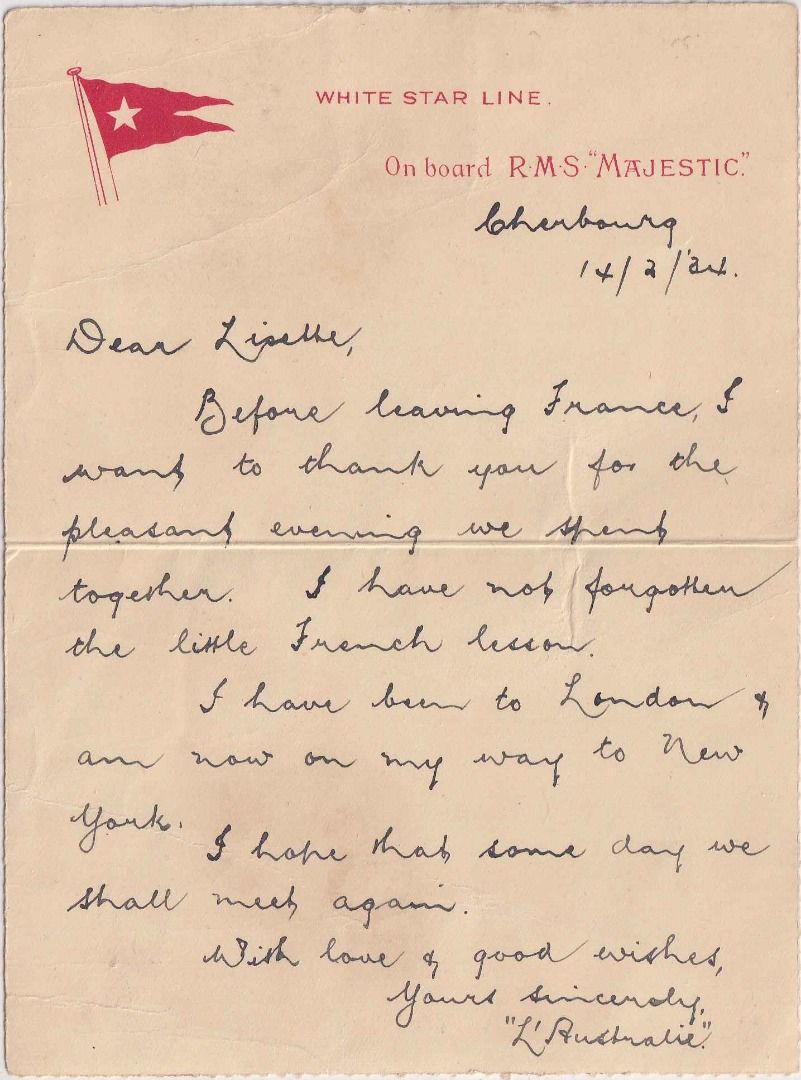 WHITE STAR LINE.
On board R·M·S· "MAJESTIC."
Cherbourg
14/2/34.
Dear Lisette,
Before leaving France, I
want to thank you for the
pleasant evening we spent
together. I have not forgotten
the little French lesson.
I have been to London &
am now on my way to New
York.
I hope that some day we
shall meet again.
With love & good wishes,
Yours sincerely,
"L'Australie".